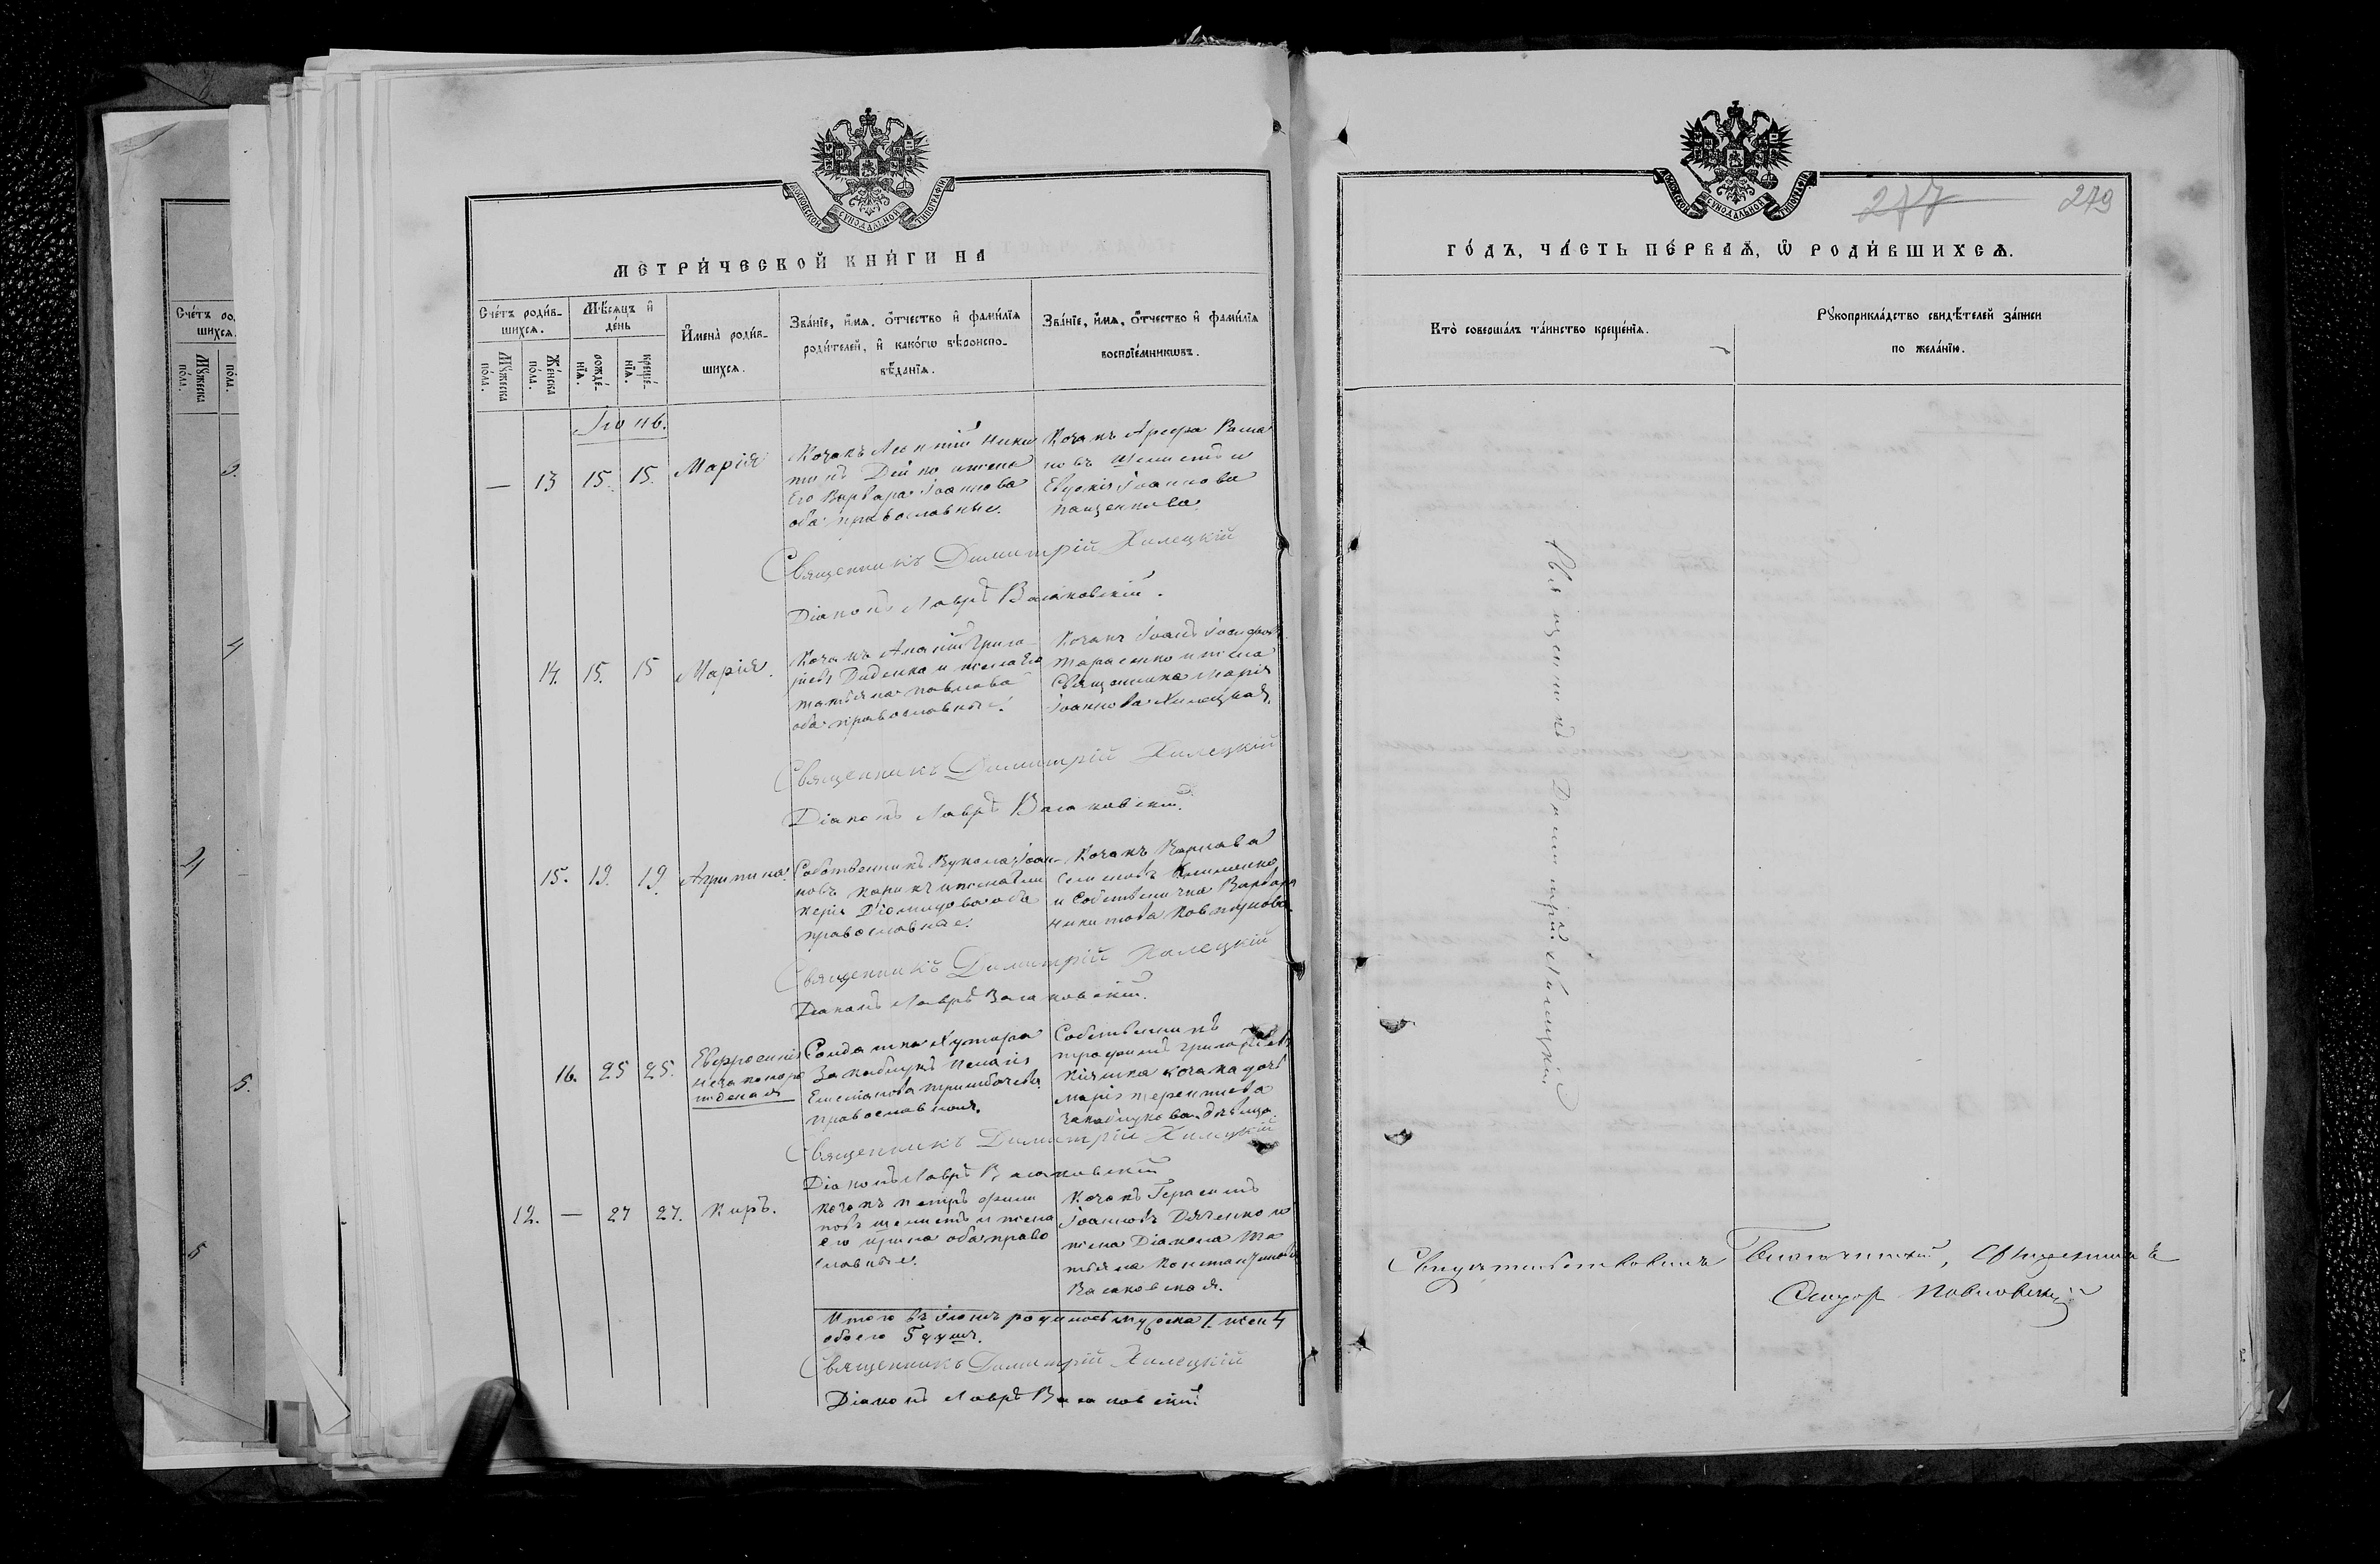 МЕТРИ́ЧЕСКОЙ КНИ́ГИ НА
Сче́тъ роди́в-
шихсѧ.
Мꙋ́жеска по́ла.
Же́нска по́ла.
Мѣ́сѧцъ и҆ де́нь
рожде́-
нїѧ.
креще́-
нїѧ.
И҆мена̀ роди́в-
шихсѧ.
Зва́нїе, и҆́мѧ, ѻ҆́тчество и҆ фами́лїѧ
роди́телей, и҆ како́гѡ вѣроиспо-
вѣ́данїѧ.
Зва́нїе, и҆́мѧ, ѻ҆́тчество и҆ фами́лїѧ
воспрїе́мникѡвъ.
Іюнь.
— 13 15. 15. Марія
Козакъ Леонтій Ники
тинъ Дейко и жена
Его Варвара Іоаннова
оба православные.
Козакъ Арефа Рома
новъ и
Евдокія Іоаннова
Пащенкова.
Священникъ Димитрій Хилецкій
Діаконъ Лавръ Васаковскій.
14. 15. 15 Марія.
Козакъ Ананій Григо
ріевъ Диденко и жена Его
Татіяна Павлова
оба православные.
Козакъ Іоанъ
Тарасенко и жена
Священника Марія
Іоаннова Хилецкая.
Священникъ Димитрій Хилецкій
Діаконъ Лавръ Васаковскій.
15. 19. 19. Агрипина.
Собственникъ Іоан-
новъ и жена
Діомидова оба
православные.
Козакъ Варнава
Клименко
и Собственичка Варвара
Никитова
Священникъ Димитрій Хилецкій
Діаконъ Лавръ Васаковскій.
16. 25 25. Евфросинія
незаконоро
жденая
Солдатка Хутора
Пелагія
Емеліанова
православная.
Собственникъ
Трофимъ Григоріевъ
козака дочь
Марія Терентіева
дѣвица.
Священникъ Димитрій Хилецкій
Діаконъ Лавръ Васаковскій
12. — 27 27. Киръ.
Козакъ Петръ Фили
повъ и жена
его Ирина оба право
славные.
Козакъ Герасимъ
Іоанновъ Дяченко и
жена Діакона Та
тіяна Константинова
Васаковская.
Итого въ Іюнѣ родилось мужеска 1. жен 4
обоего 5 душъ.
Священникъ Димитрій Хилецкій
Діаконъ Лавръ Васаковскій
277 279
ГО́ДЪ, ЧА́СТЬ ПЕ́РВАѦ, Ѡ҆ РОДИ́ВШИХСѦ.
Кто̀ соверша́лъ та́инство креще́нїѧ.
Рꙋкоприкла́дство свидѣ́телей за́писи
по жела́нїю.
Священникъ Димитрій Хилецкій
Свидѣтельствовалъ Благочинный, Священникъ